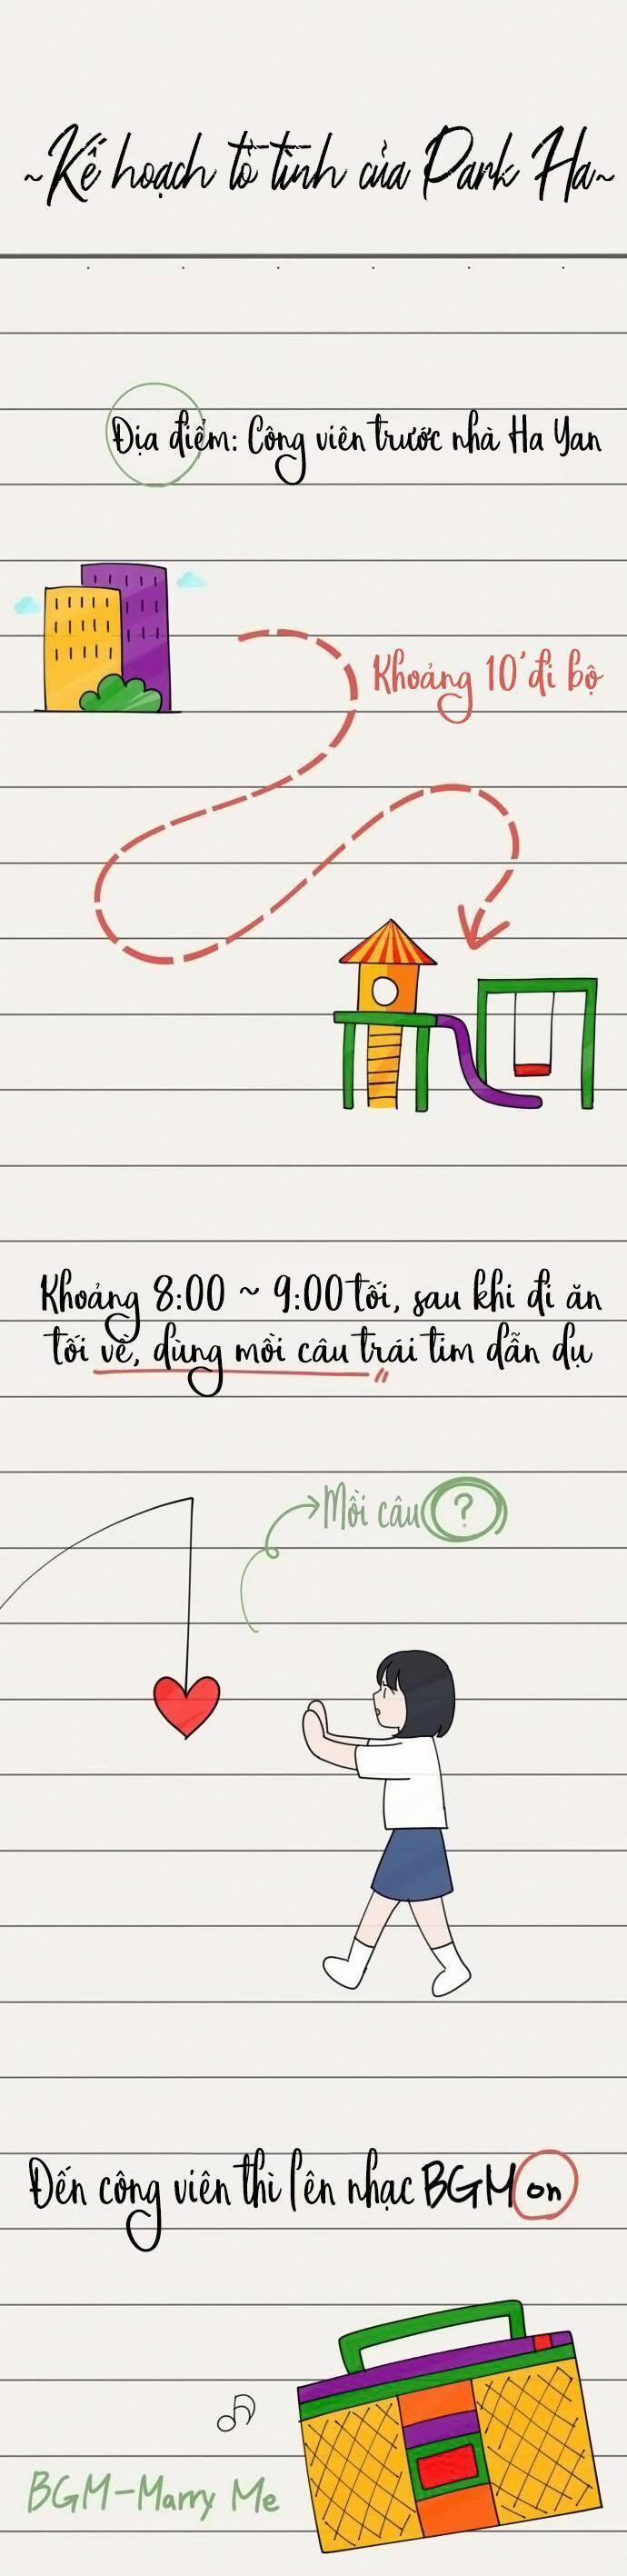 ~Kế hoạch tỏ tình của Park Ha~
Địa điểm: Công viên trước nhà Ha Yan
Khoảng 10' đi bộ
Khoảng 8:00 ~ 9:00 tối, sau khi đi ăn
tối về, dùng mồi câu trái tim dẫn dụ
Mồi câu ?
Đến công viên thì lên nhạc BGM on
BGM-Marry Me